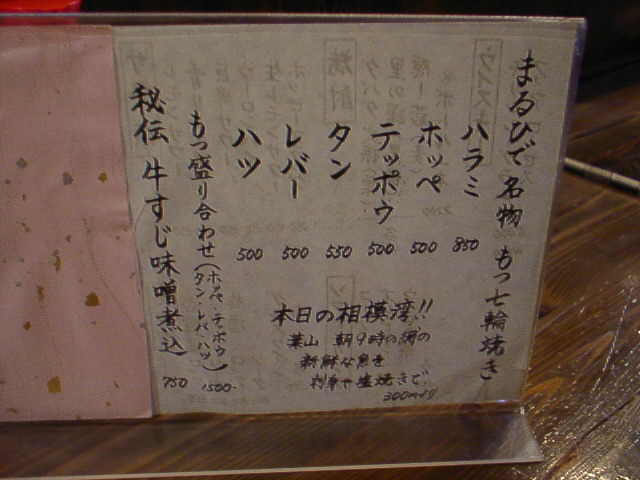 まるひで名物 もつ七輪焼き
ハラミ 850
ホッペ 500
テッポウ 500
タン 550
レバー 500
ハツ 500
もつ盛り合わせ(ホッペ・テッポウ タン・レバー・ハツ) 1500-
秘伝 牛すじ味噌煮込 750
本日の相模湾!!
葉山 朝9時の網の
新鮮な魚を
刺身や塩焼きで
300円より